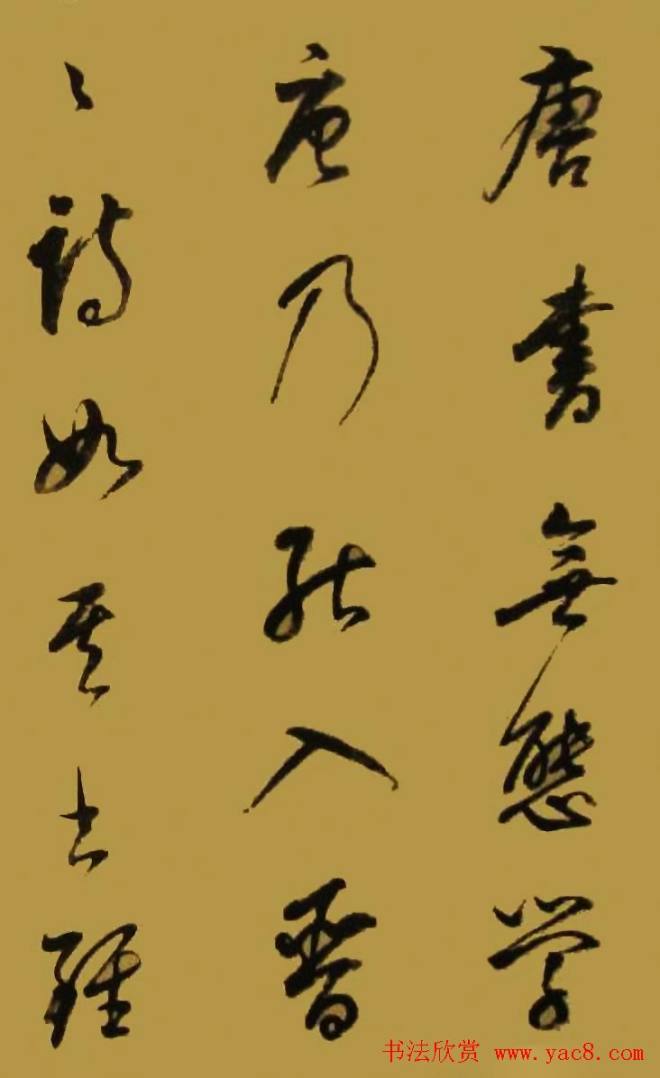 唐書無態學
唐乃能入晉
〻詩如其書雖
书法欣赏 www.yac8.com